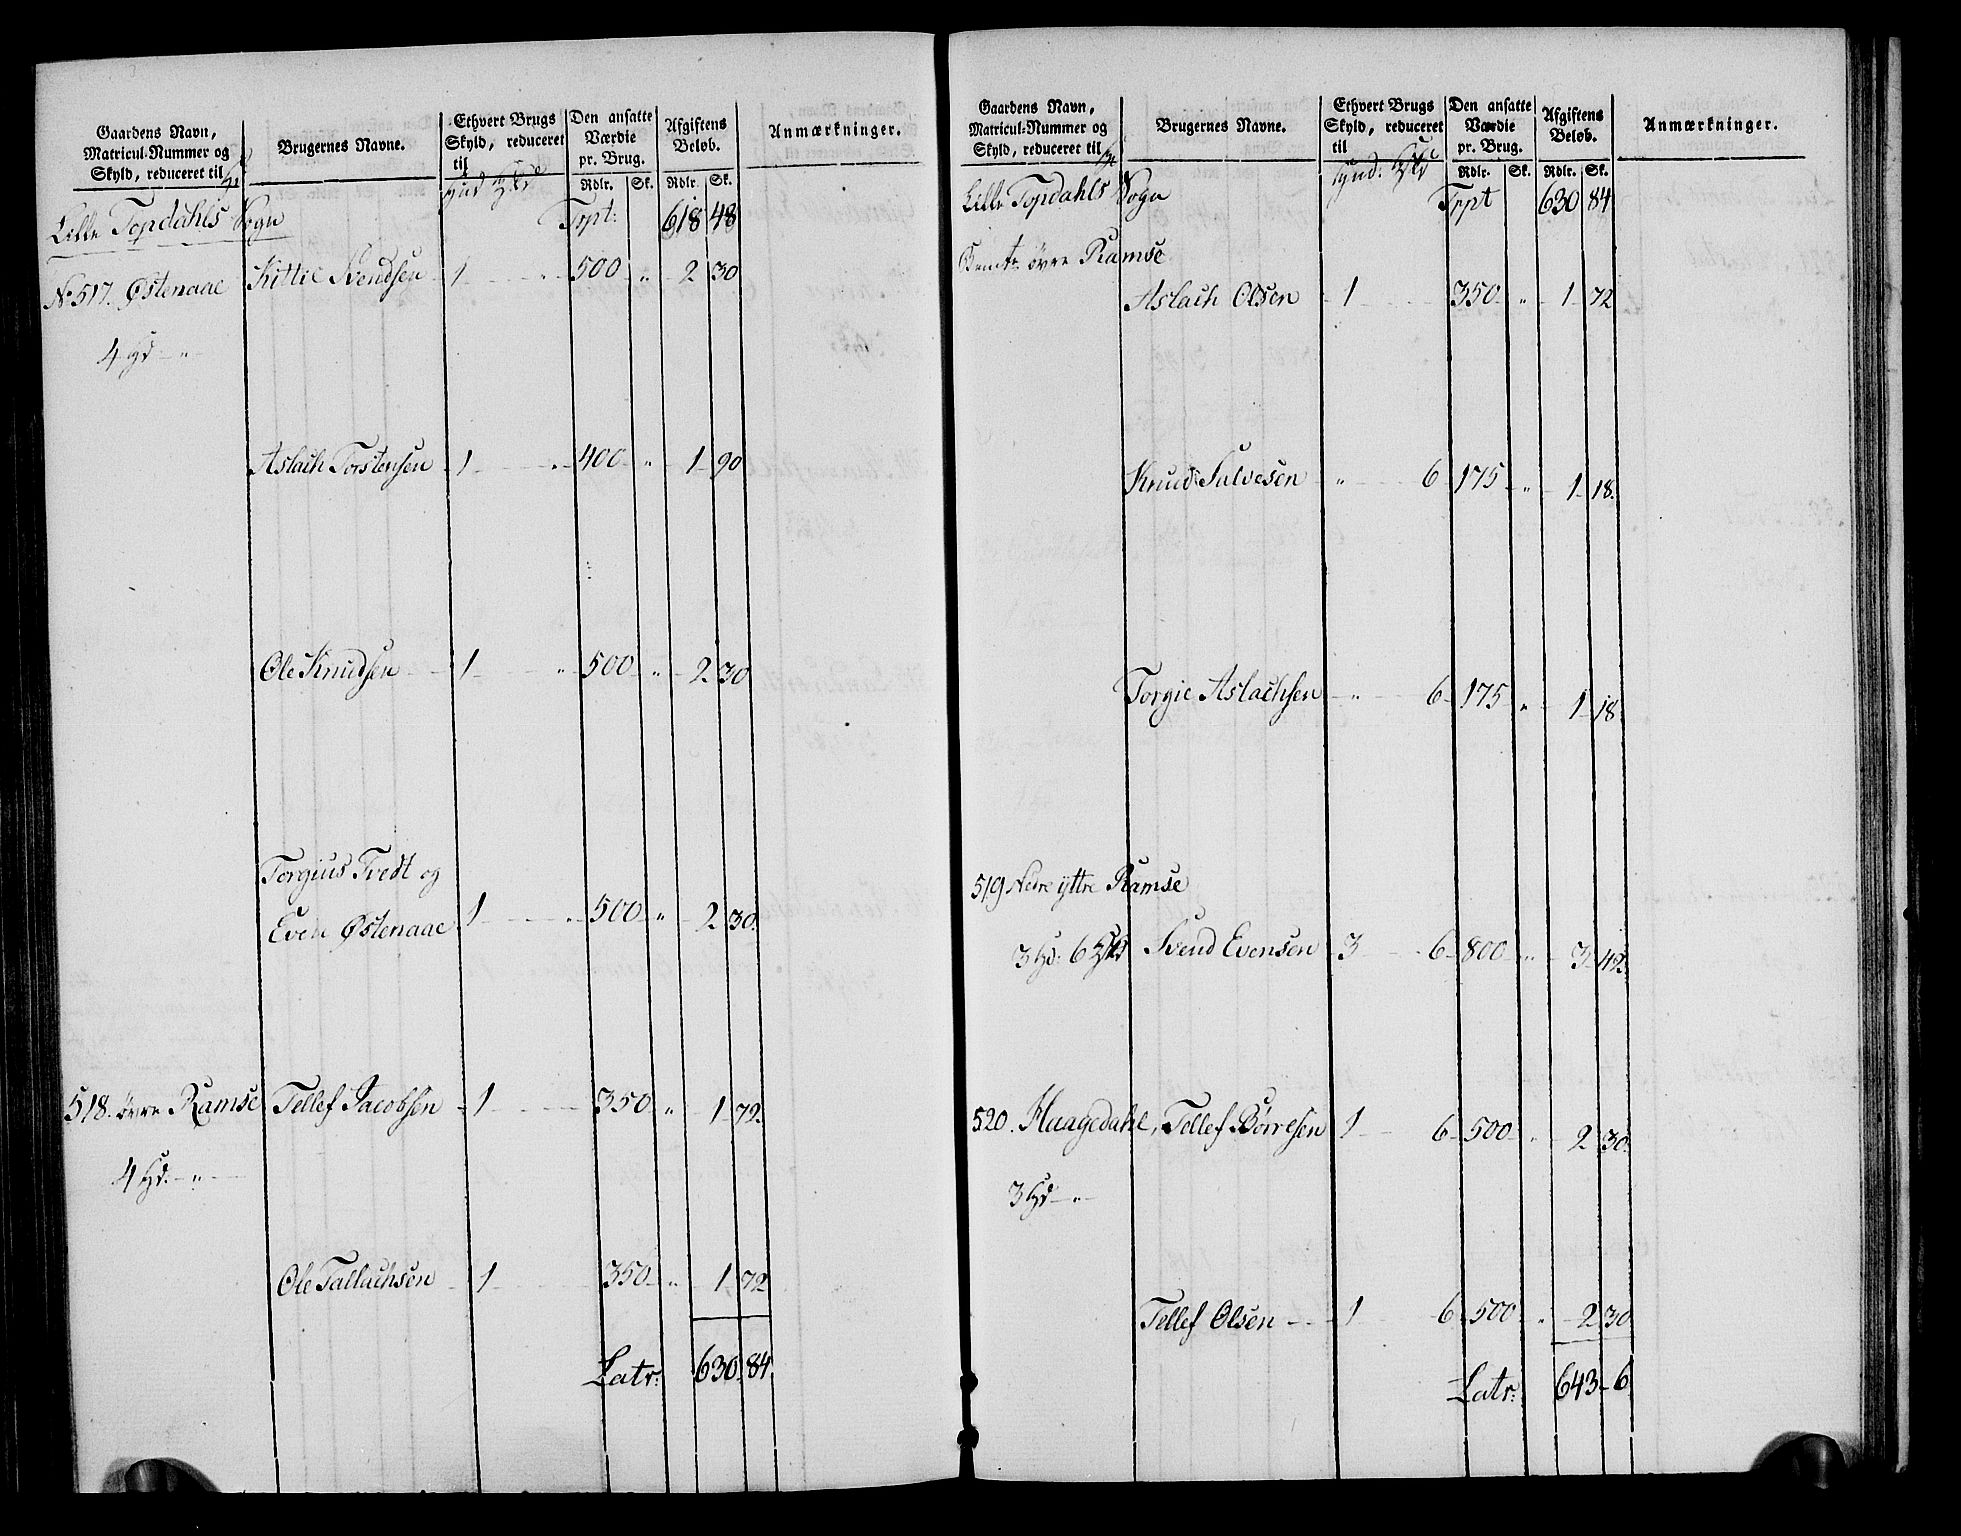 Gaardens Navn, Matricul-Nummer og Skyld, reduceret til
Brugernes Navne.
Ethvert Brugs Skyld, reduceret til
Den ansatte Værdie pr. Brug.
Afgiftens Beløb.
Anmærkninger.
Rdlr. Sk. Rdlr. Sk.
Lille Topdahls Sogn Trpt: 618 48
No 517. Østenaae Kittil Svendsen 1 " 500 " 2 30
4 Hd "
Aslach Torstensen 1 " 400 " 1 90
Ole Knudsen 1 " 500 " 2 30
Torgius Tvedt og
Even Østenaae 1 " 500 " 2 30.
518. øvre Ramse Tellef Jacobsen 1 350 " 1 72
4 Hd. "
Ole Tallachsen 1 350 " 1 72
Latr: 630 84
Gaardens Navn, Matricul-Nummer og Skyld, reduceret til
Brugernes Navne.
Ethvert Brugs Skyld, reduceret til
Den ansatte Værdie pr. Brug.
Afgiftens Beløb.
Anmærkninger.
Rdlr. Sk. Rdlr. Sk.
Lille Topdahls Sogn Trpt 630 84
øvre Ramse
Aslach Olsen 1 350 " 1 72
Knud Salvesen " 6 175 " 1 18.
Torgie Aslachsen " 6 175 " 1 18
519 Nedre yttre Ramse
3 Hd: 6 Svend Evensen 3 6 800 " 3 42.
520. Haagedahl, Tellef Børresen 1 6 500 " 2 30.
3 Hd "
Tellef Olsen 1 6 500 " 2 30
Latr: 643 6